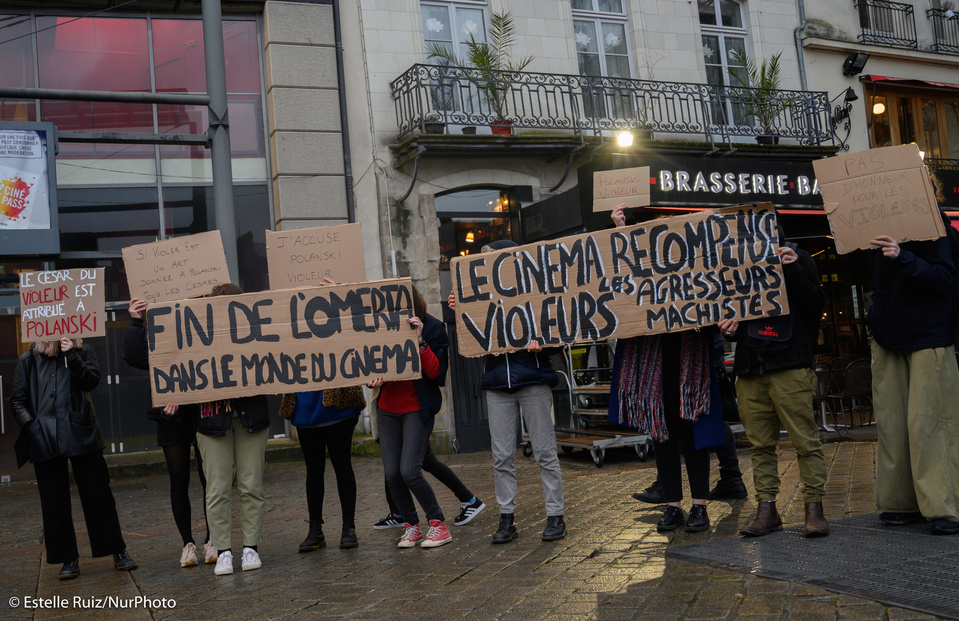 CINÉ
PASS
LE CESAR DU
VIOLEUR EST
ATTRIBUÉ À
POLANSKI
SI VIOLER EST
UN ART
DONNER À POLANSKI
TOUS LES CESARS
J'ACCUSE
POLANSKI
VIOLEUR
FIN DE L'OMERTA
DANS LE MONDE DU CINEMA
LE CINEMA RECOMPENSE
VIOLEURS LES AGRESSEURS
MACHISTES
POLANSKI
VIOLEUR
BRASSERIE • BA
PAS
D'HONNEUR
POUR LES
VIOLEURS
© Estelle Ruiz/NurPhoto